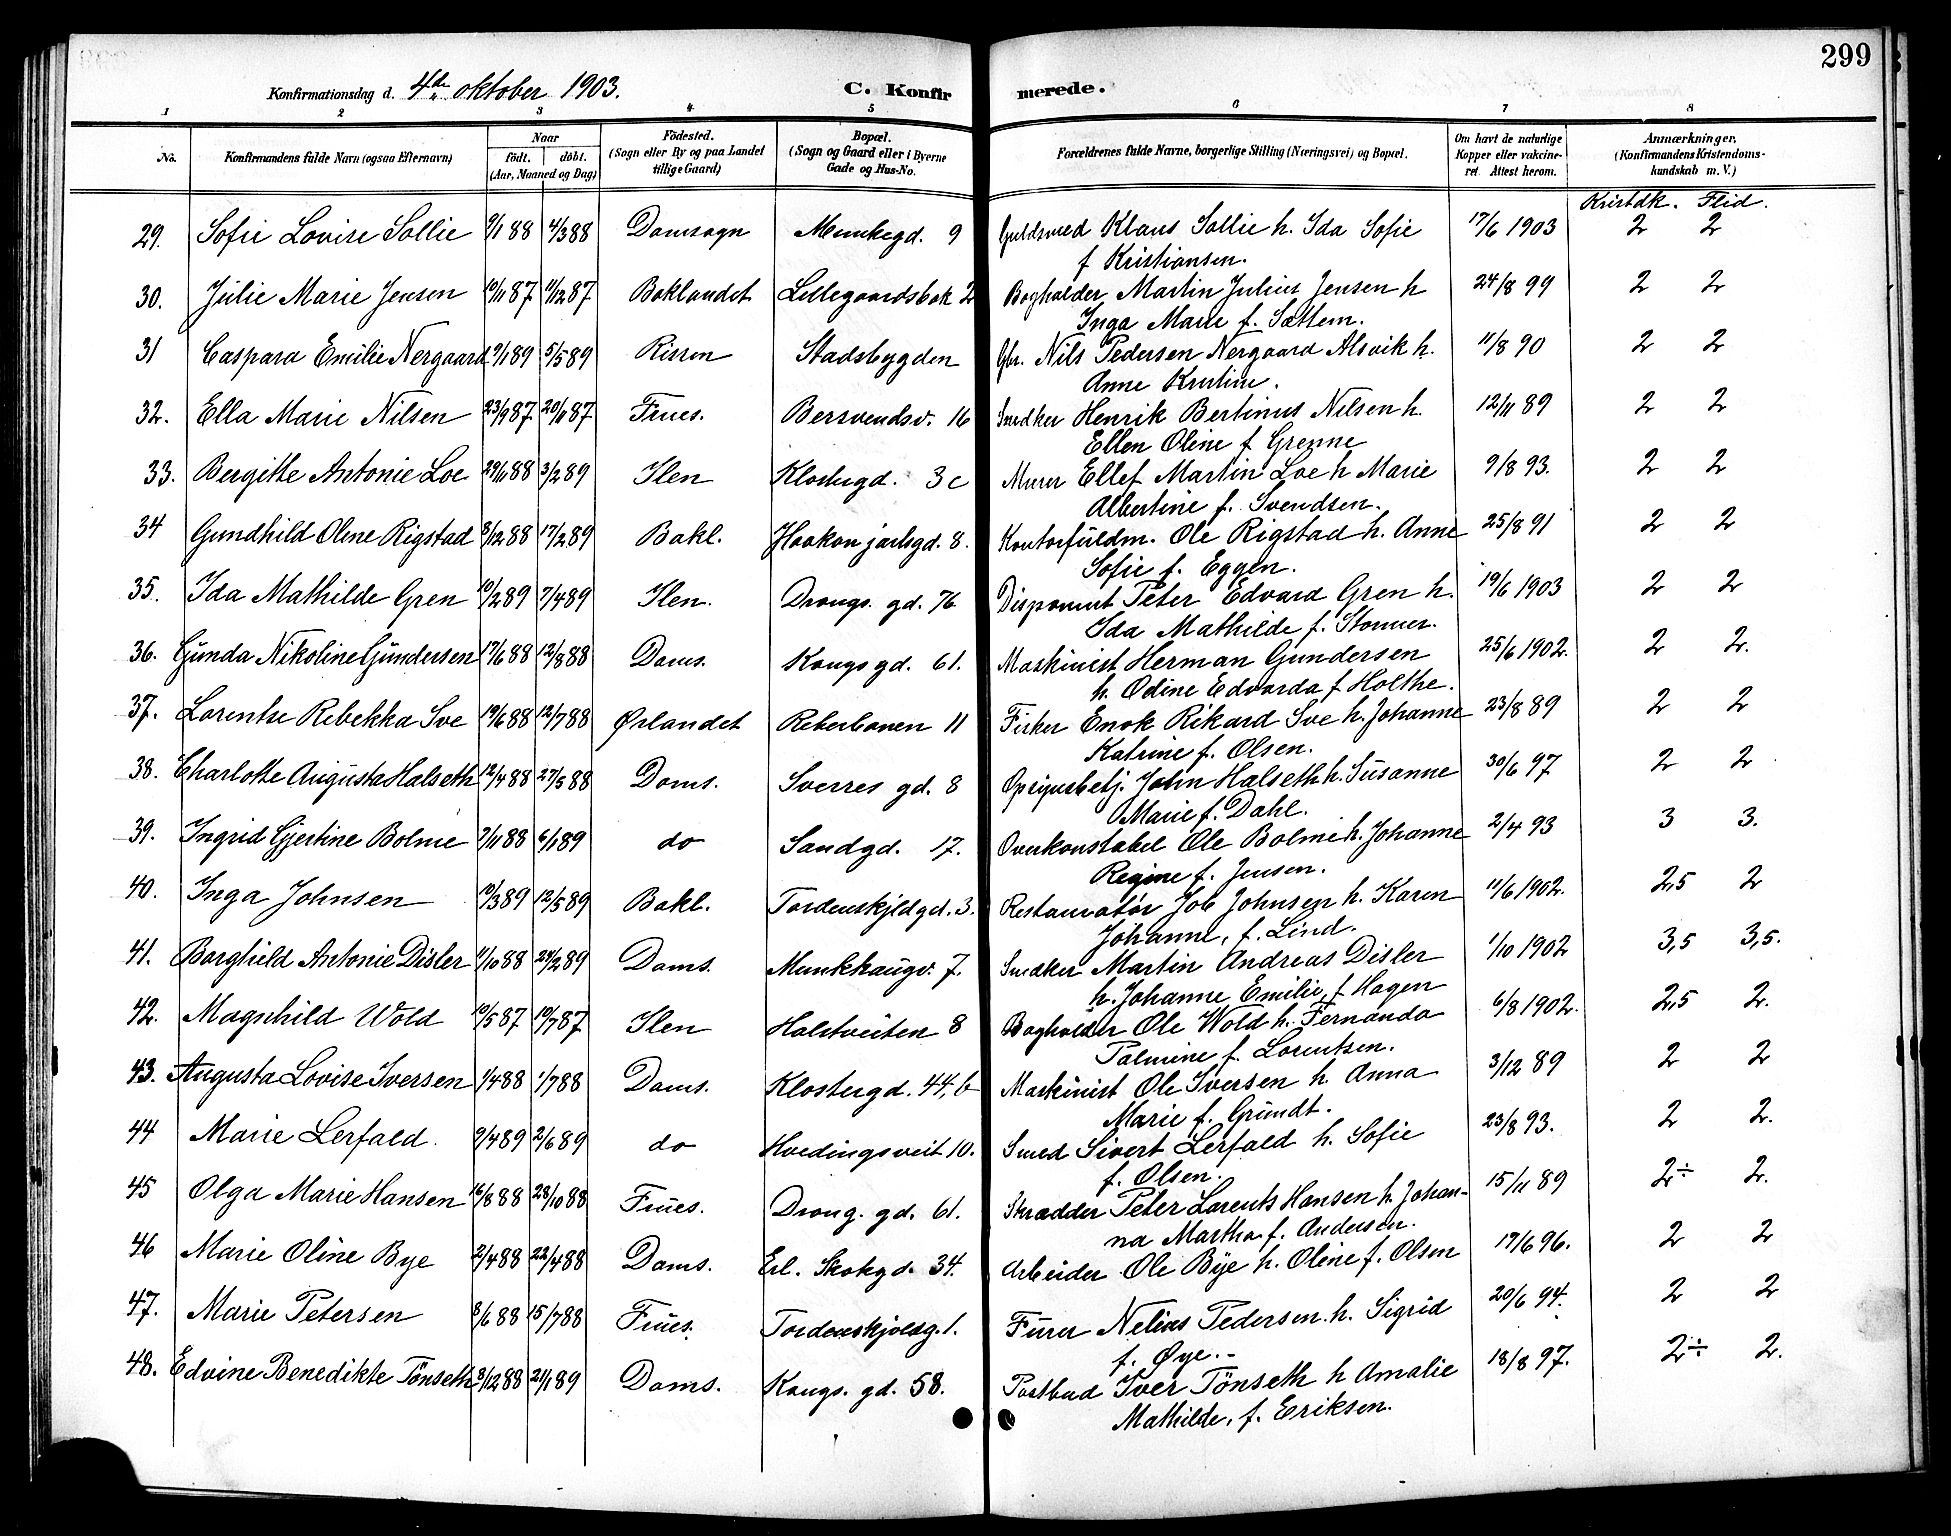 299
Konfirmationsdag d. 4de oktober 1903. C. Konfirmerede.
1 2 3 4 5 6 7 8
No. Konfirmandens fulde Navn (ogsaa Efternavn) Naar födt. döbt. (Aar, Maaned og Dag) Födested. (Sogn eller By og paa Landet tillige Gaard) Bopæl. (Sogn og Gaard eller i Byerne Gade og Hus-No. Forældrenes fulde Navne, borgerlige Stilling (Næringsvei) og Bopæl. Om havt de naturlige Kopper eller vakcineret. Attest herom. Anmærkninger. (Konfirmandens Kristendomskundskab m. V.)
Kristdk. Flid.
29. Sofie Lovise Sollie 9/1 88 4/3 88 Domsogn Munkegd. 9 Guldsmed Klaus Sollie h. Ida Sofie 17/6 1903 2 2
f Kristiansen.
30. Julie Marie Jensen 10/11 87 11/12 87 Baklandet Lillegaardsbak 2 Bogholder Martin Julius Jensen h 24/8 99 2 2
Inga Marie f. Sættem.
31 Caspara Emilie Nergaard 9/1 89 5/5 89 Rissen Stadsbygden Gbr. Nils Pedersen Nergaard Alsvik h. 11/8 90 2 2
Anne Kristine.
32. Ella Marie Nilsen 23/9 87 20/11 87 Frues. Bersvendsv. 16 Snedker Henrik Bertinus Nilsen h. 12/11 89 2 2
Ellen Oline f. Grenne
33. Bergitte Antonie Loe 29/11 88 3/2 89 Ilen Klostergd. 3c Murer Ellef Martin Loe h Marie 9/8 93. 2 2
Albertine f. Svendsen.
34 Gundhild Oline Rigstad 3/12 88 17/2 89 Bakl. Haakon jarlsgd. 8. Kontorfuldm. Ole Rigstad h. Anne 25/8 91 2 2
Sofie f. Eggen.
35. Ida Mathilde Gren 10/2 89 7/4 89 Ilen. Drongs. gd. 76 Disponent Peter Edvard Gren h. 19/6 1903 2 2
Ida Mathilde f. Stormer.
36. Gunda Nikoline Gundersen 17/6 88 12/8 88 Doms. Kongsgd. 61. Maskinist Herman Gundersen 25/6 1902. 2 2.
h. Odine Edvarda f Holthe.
37. Lorentse Rebekka Sve 19/6 88 12/7 88 Ørlandet Reberbanen 11 Fisker Enok Rikard Sve h. Johanne 23/8 89 2 2
Katrine f. Olsen.
38. Charlotte Augusta Halseth 12/4 88 27/5 88 Doms. Sverres gd. 8 Opsynsbetj. John Halseth h. Susanne 30/6 97 2 2
Marie f. Dahl.
39. Ingrid Gjertine Bolme 7/11 88 6/1 89 do Sandgd. 17. Overkonstabel Ole Bolme h. Johanne 2/4 93 3 3.
Regine f. Jensen.
40. Inga Johnsen 10/3 89 12/5 89 Bakl. Tordenskjldgd. 3. Restauratør Job Johnsen h. Karen 11/6 1902. 2,5 2
Johanne, f. Lind.
41. Borghild Antonie Disler 11/10 88 24/2 89 Doms. Munkhaugv. 7. Snedker Martin Andreas Disler 1/10 1902 3,5 3,5.
h. Johanne Emilie, f Hagen
42. Magnhild Wold 10/5 87 10/7 87 Ilen Halstveiten 8 Bogholder Ole Wold h. Fernanda 6/8 1902. 2,5 2.
Palmine f. Lorentsen.
43. Augusta Lovise Iversen 1/4 88 1/7 88 Doms. Klostergd. 44, b Maskinist Ole Iversen h. Anna 3/12 89 2 2
Marie f. Grundt.
44 Marie Lerfald. 9/4 89 2/6 89 do Hvedingsveit 10. Smed Sivert Lerfald h. Sofie 23/8 93. 2 2.
f. Olsen.
45 Olga Marie Hansen 16/8 88 28/10 88 Frues. Drong. gd. 61. Skrædder Peter Lorents Hansen h. Johan- 15/11 89 2÷ 2.
na Martha f. Andersen.
46 Marie Oline Bye 2/4 88 22/4 88 Doms. Erl. Skakgd. 34. Arbeider Ole Bye h. Oline f. Olsen 17/6 96. 2 2
47. Marie Petersen 8/6 88 15/7 88 Frues. Tordenskjoldsg. 1. Furer Nelius Pedersen h. Sigrid 20/6 94. 2 2
f. Øye.
48. Edvine Benedikte Tönseth 3/12 88 20/1 89 Doms. Kongs. gd. 58. Postbud Iver Tönseth h Amalie 18/8 97. 2÷ 2.
Mathilde, f. Eriksen.